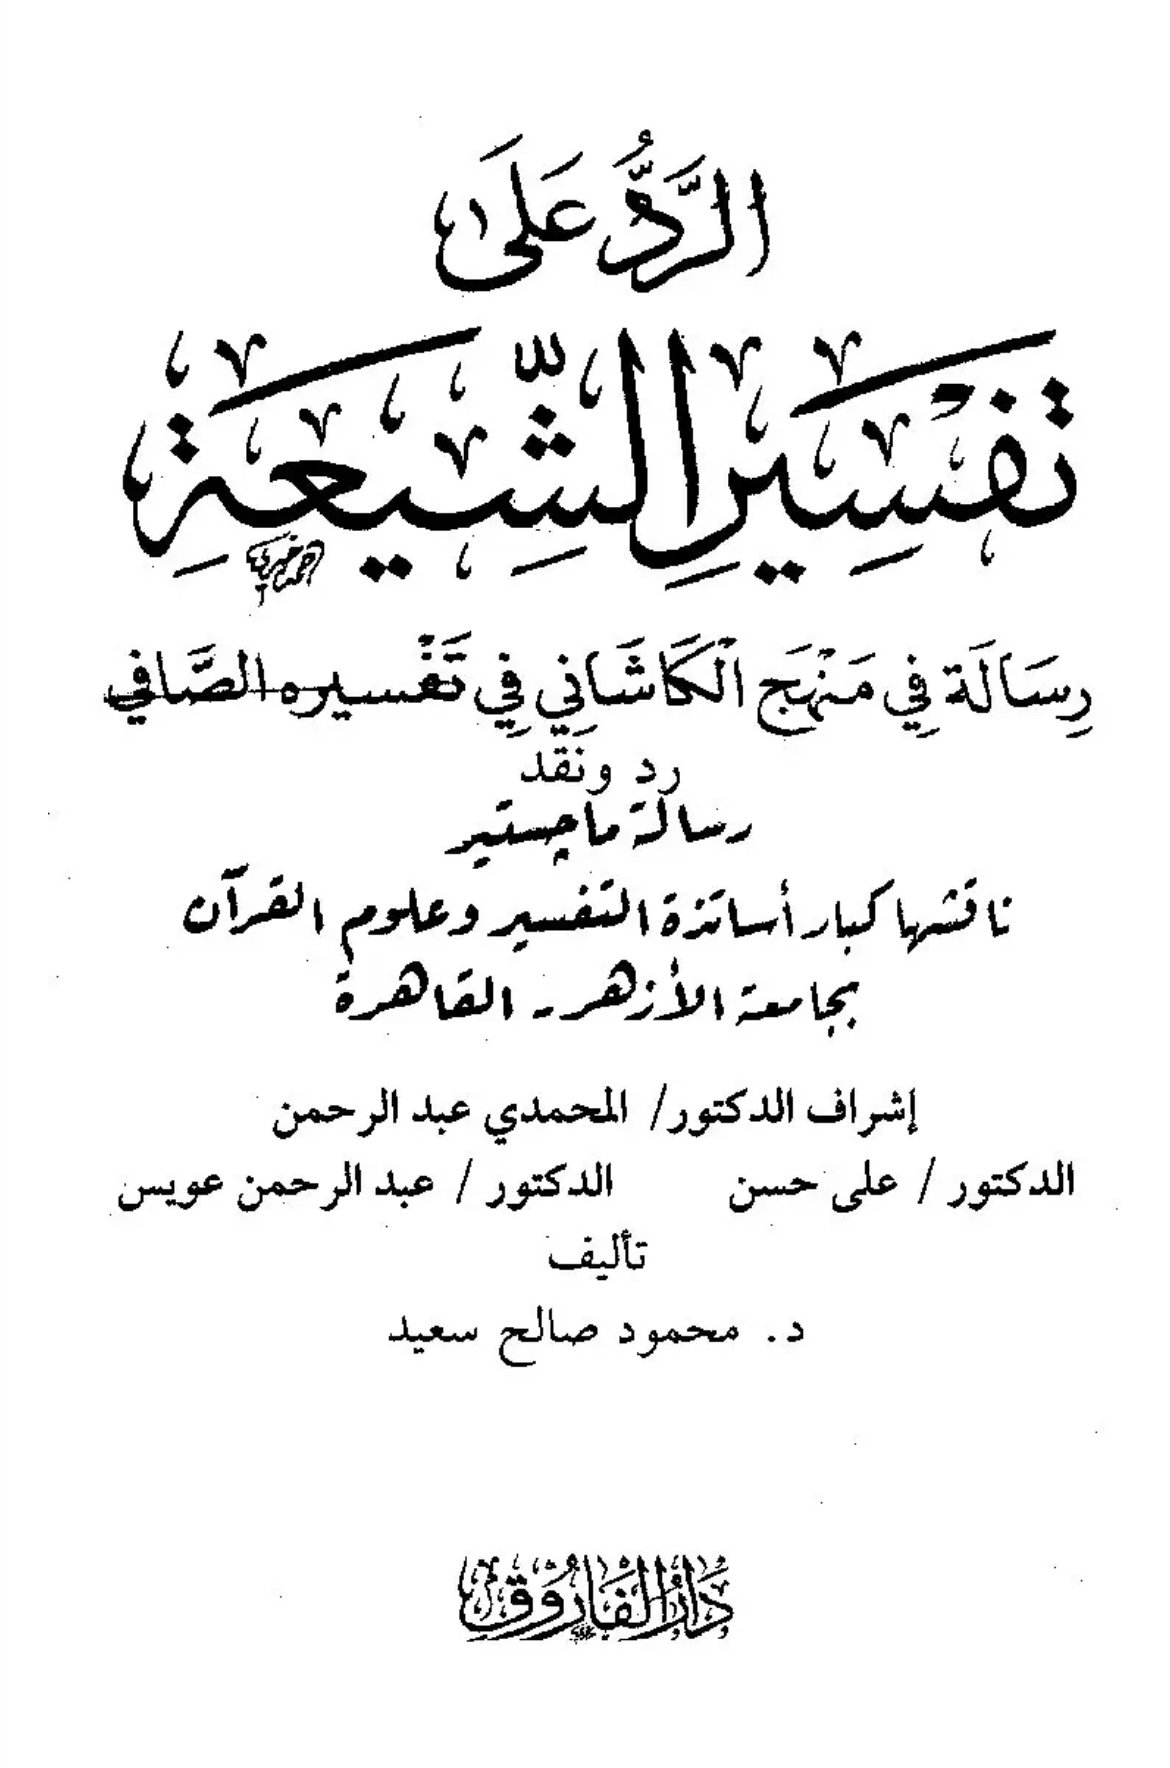 الرَّدُّ عَلَى
تَفْسِيرِ الشِّيعَةِ
رِسَالَة فِي مَنْهَج الْكَاشَانِي فِي تَفْسيره الصَّافي
رد ونقد
رسالة ماجستير
ناقشها كبار أساتذة التفسير وعلوم القرآن
بجامعة الأزهر - القاهرة
إشراف الدكتور/ المحمدي عبد الرحمن
الدكتور / على حسن الدكتور / عبد الرحمن عويس
تأليف
د. محمود صالح سعيد
دَارُ الفَارُوق